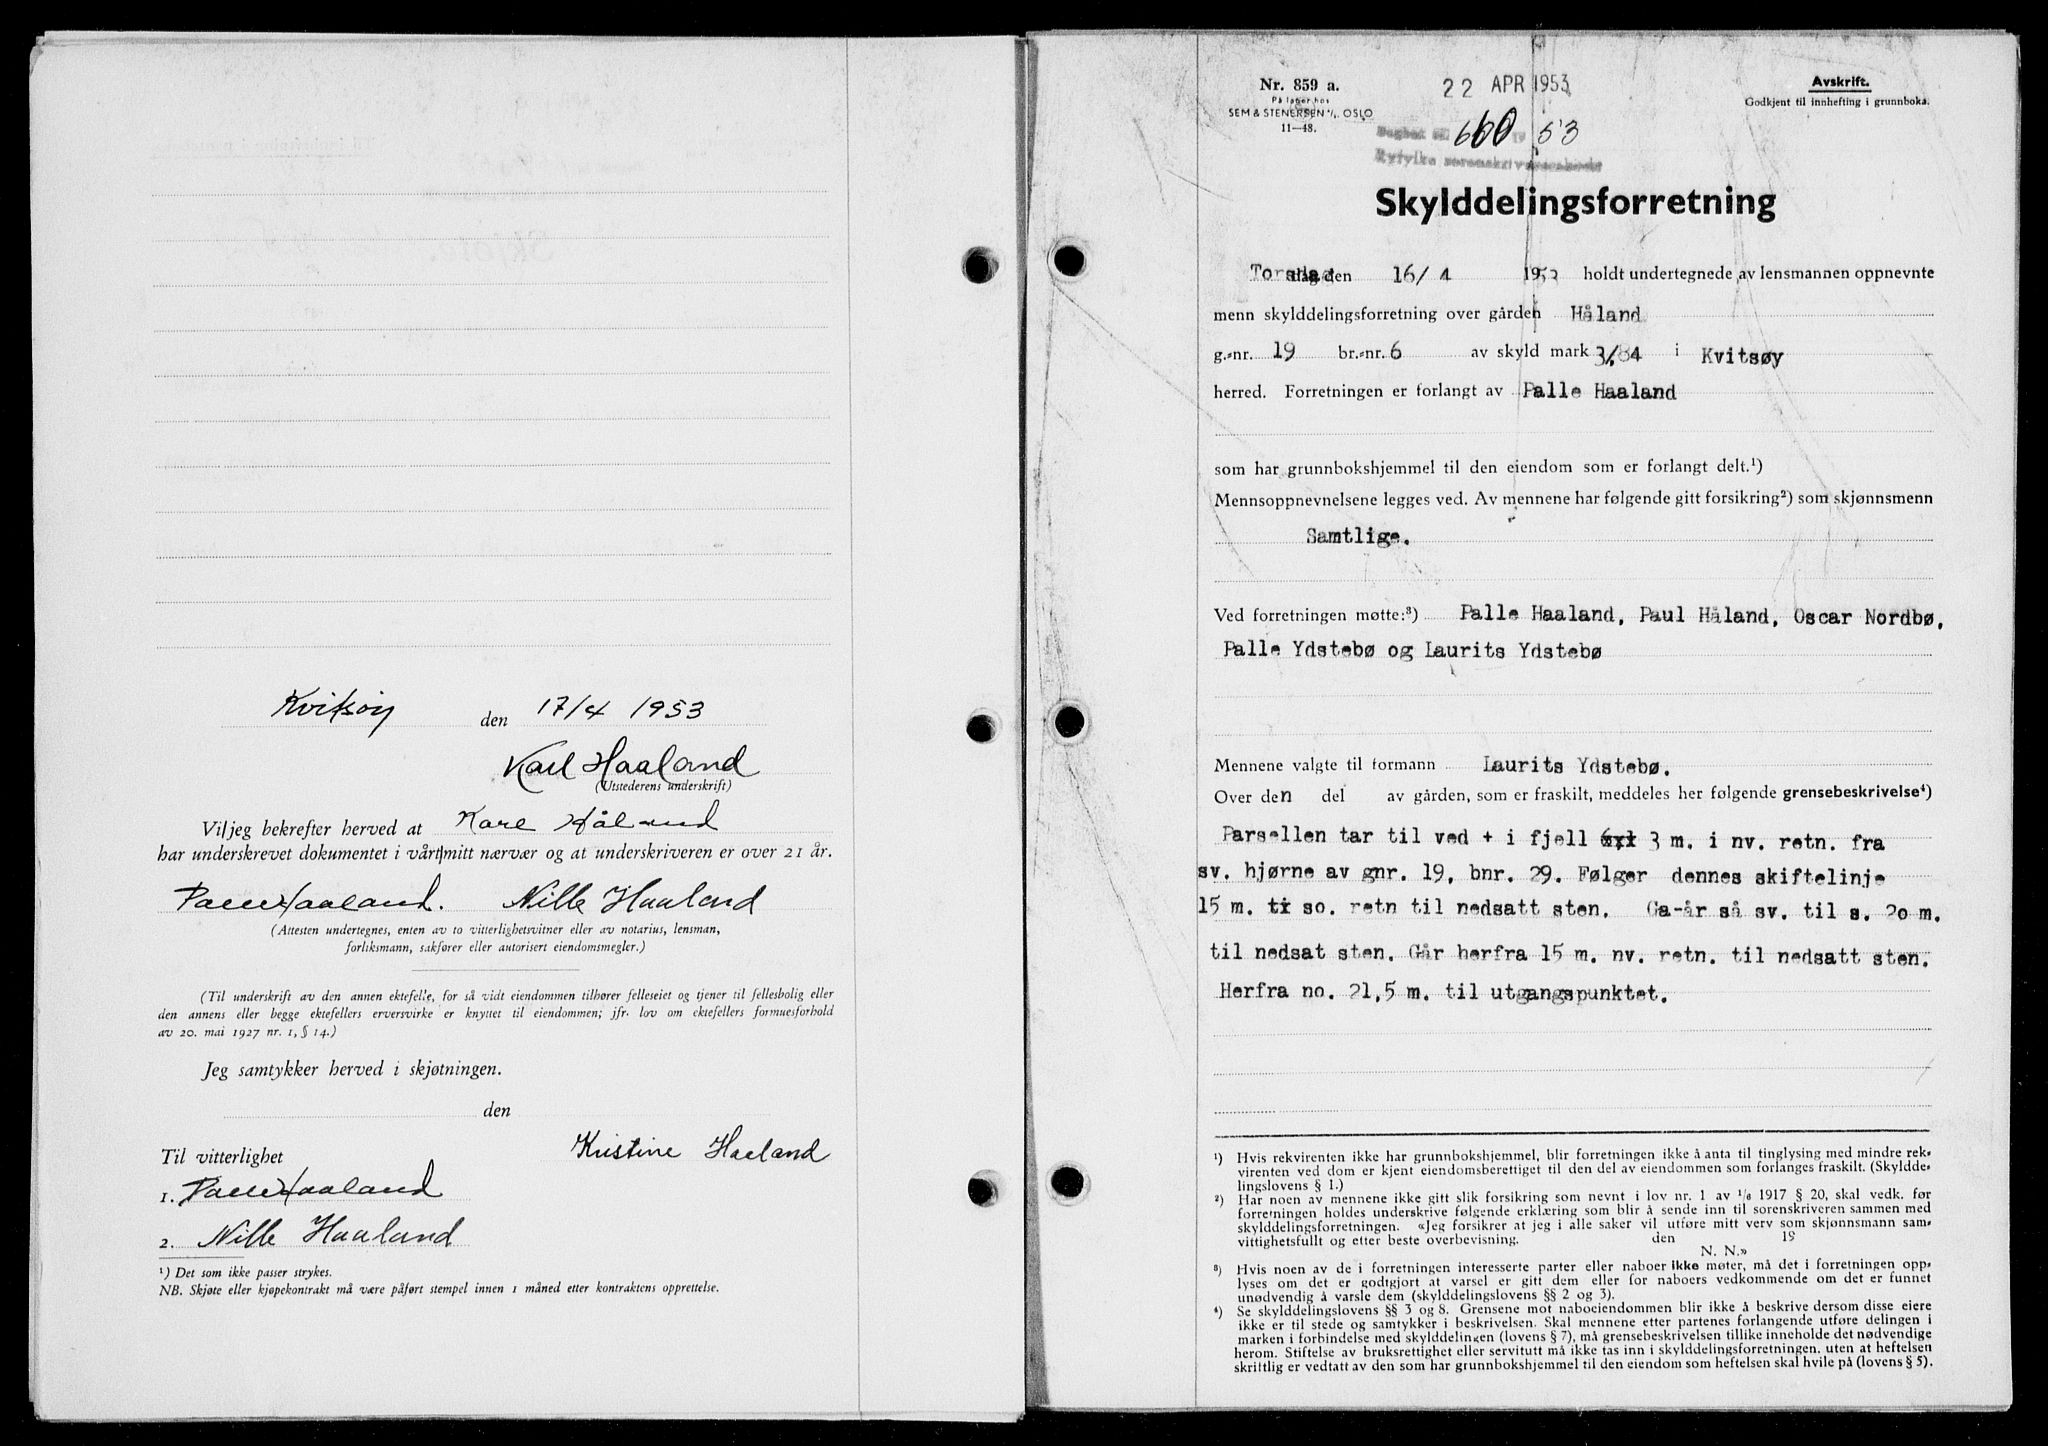 Kvitsøy den 17/4 1953
Karl Haaland
(Utstederens underskrift)
Vi/jeg bekrefter herved at Karl Håland
har underskrevet dokumentet i vårt/mitt nærvær og at underskriveren er over 21 år.
Palle Haaland. Nille Haaland
(Attesten undertegnes, enten av to vitterlighetsvitner eller av notarius, lensman,
forliksmann, sakfører eller autorisert eiendomsmegler.)
(Til underskrift av den annen ektefelle, for så vidt eiendommen tilhører felleseiet og tjener til fellesbolig eller
den annens eller begge ektefellers erversvirke er knyttet til eiendommen; jfr. lov om ektefellers formuesforhold
av 20. mai 1927 nr. 1, § 14.)
Jeg samtykker herved i skjøtningen.
den
Kristine Haaland
Til vitterlighet
1. Palle Haaland
2. Nille Haaland
¹) Det som ikke passer strykes.
NB. Skjøte eller kjøpekontrakt må være påført stempel innen 1 måned etter kontraktens opprettelse.
Nr. 859 a.
På lager hos
SEM & STENERSEN A/S. OSLO
11—48.
22 APR 1953
Dagbok nr. 660 19 53
Ryfylke sorenskriverembede
Avskrift.
Godkjent til innhefting i grunnboka.
Skylddelingsforretning
Torsdag den 16/4 1953 holdt undertegnede av lensmannen oppnevnte
menn skylddelingsforretning over gården Håland
g.-nr. 19 br.-nr. 6 av skyld mark 3,84 i Kvitsøy
herred. Forretningen er forlangt av Palle Haaland
som har grunnbokshjemmel til den eiendom som er forlangt delt.¹)
Mennsoppnevnelsene legges ved. Av mennene har følgende gitt forsikring²) som skjønnsmenn
Samtlige.
Ved forretningen møtte:³) Palle Haaland, Paul Håland, Oscar Nordbø,
Palle Ydstebø og Laurits Ydstebø
Mennene valgte til formann Laurits Ydstebø.
Over den del av gården, som er fraskilt, meddeles her følgende grensebeskrivelse⁴)
Parsellen tar til ved + i fjell 3 m. i nv. retn. fra
sv. hjørne av gnr. 19, bnr. 29. Følger dennes skiftelinje
15 m. ti so. retn til nedsatt sten. Ga-år så sv. til s. 20 m.
til nedsat sten. Går herfra 15 m. nv. retn. til nedsatt sten.
Herfra no. 21,5 m. til utgangspunktet.
¹) Hvis rekvirenten ikke har grunnbokshjemmel, blir forretningen ikke å anta til tinglysing med mindre rek-
virenten ved dom er kjent eiendomsberettiget til den del av eiendommen som forlanges fraskilt. (Skyldde-
lingslovens § 1.)
²) Har noen av mennene ikke gitt slik forsikring som nevnt i lov nr. 1 av ¹/₆ 1917 § 20, skal vedk. før
forretningen holdes underskrive følgende erklæring som blir å sende inn til sorenskriveren sammen med
skylddelingsforretningen. «Jeg forsikrer at jeg i alle saker vil utføre mitt verv som skjønnsmann sam-
vittighetsfullt og etter beste overbevisning. den 19
N. N.»
³) Hvis noen av de i forretningen interesserte parter eller naboer ikke møter, må det i forretningen opp-
lyses om det er godtgjort at varsel er gitt dem eller for naboers vedkommende om det er funnet
unødvendig å varsle dem (skylddelingslovens §§ 2 og 3).
⁴) Se skylddelingslovens §§ 3 og 8. Grensene mot naboeiendommen blir ikke å beskrive dersom disse eiere
ikke er til stede og samtykker i beskrivelsen. Skal mennene etter partenes forlangende utføre delingen i
marken i forbindelse med skylddelingen (lovens § 7), må grensebeskrivelsen tillike inneholde det nødvendige
herom. Stiftelse av bruksrettighet eller servitutt må ikke tas inn i skylddelingsforretningen, uten at heftelsen
skriftlig er vedtatt av den som har grunnbokshjemmel til den eiendom som heftelsen skal hvile på (lovens § 5).